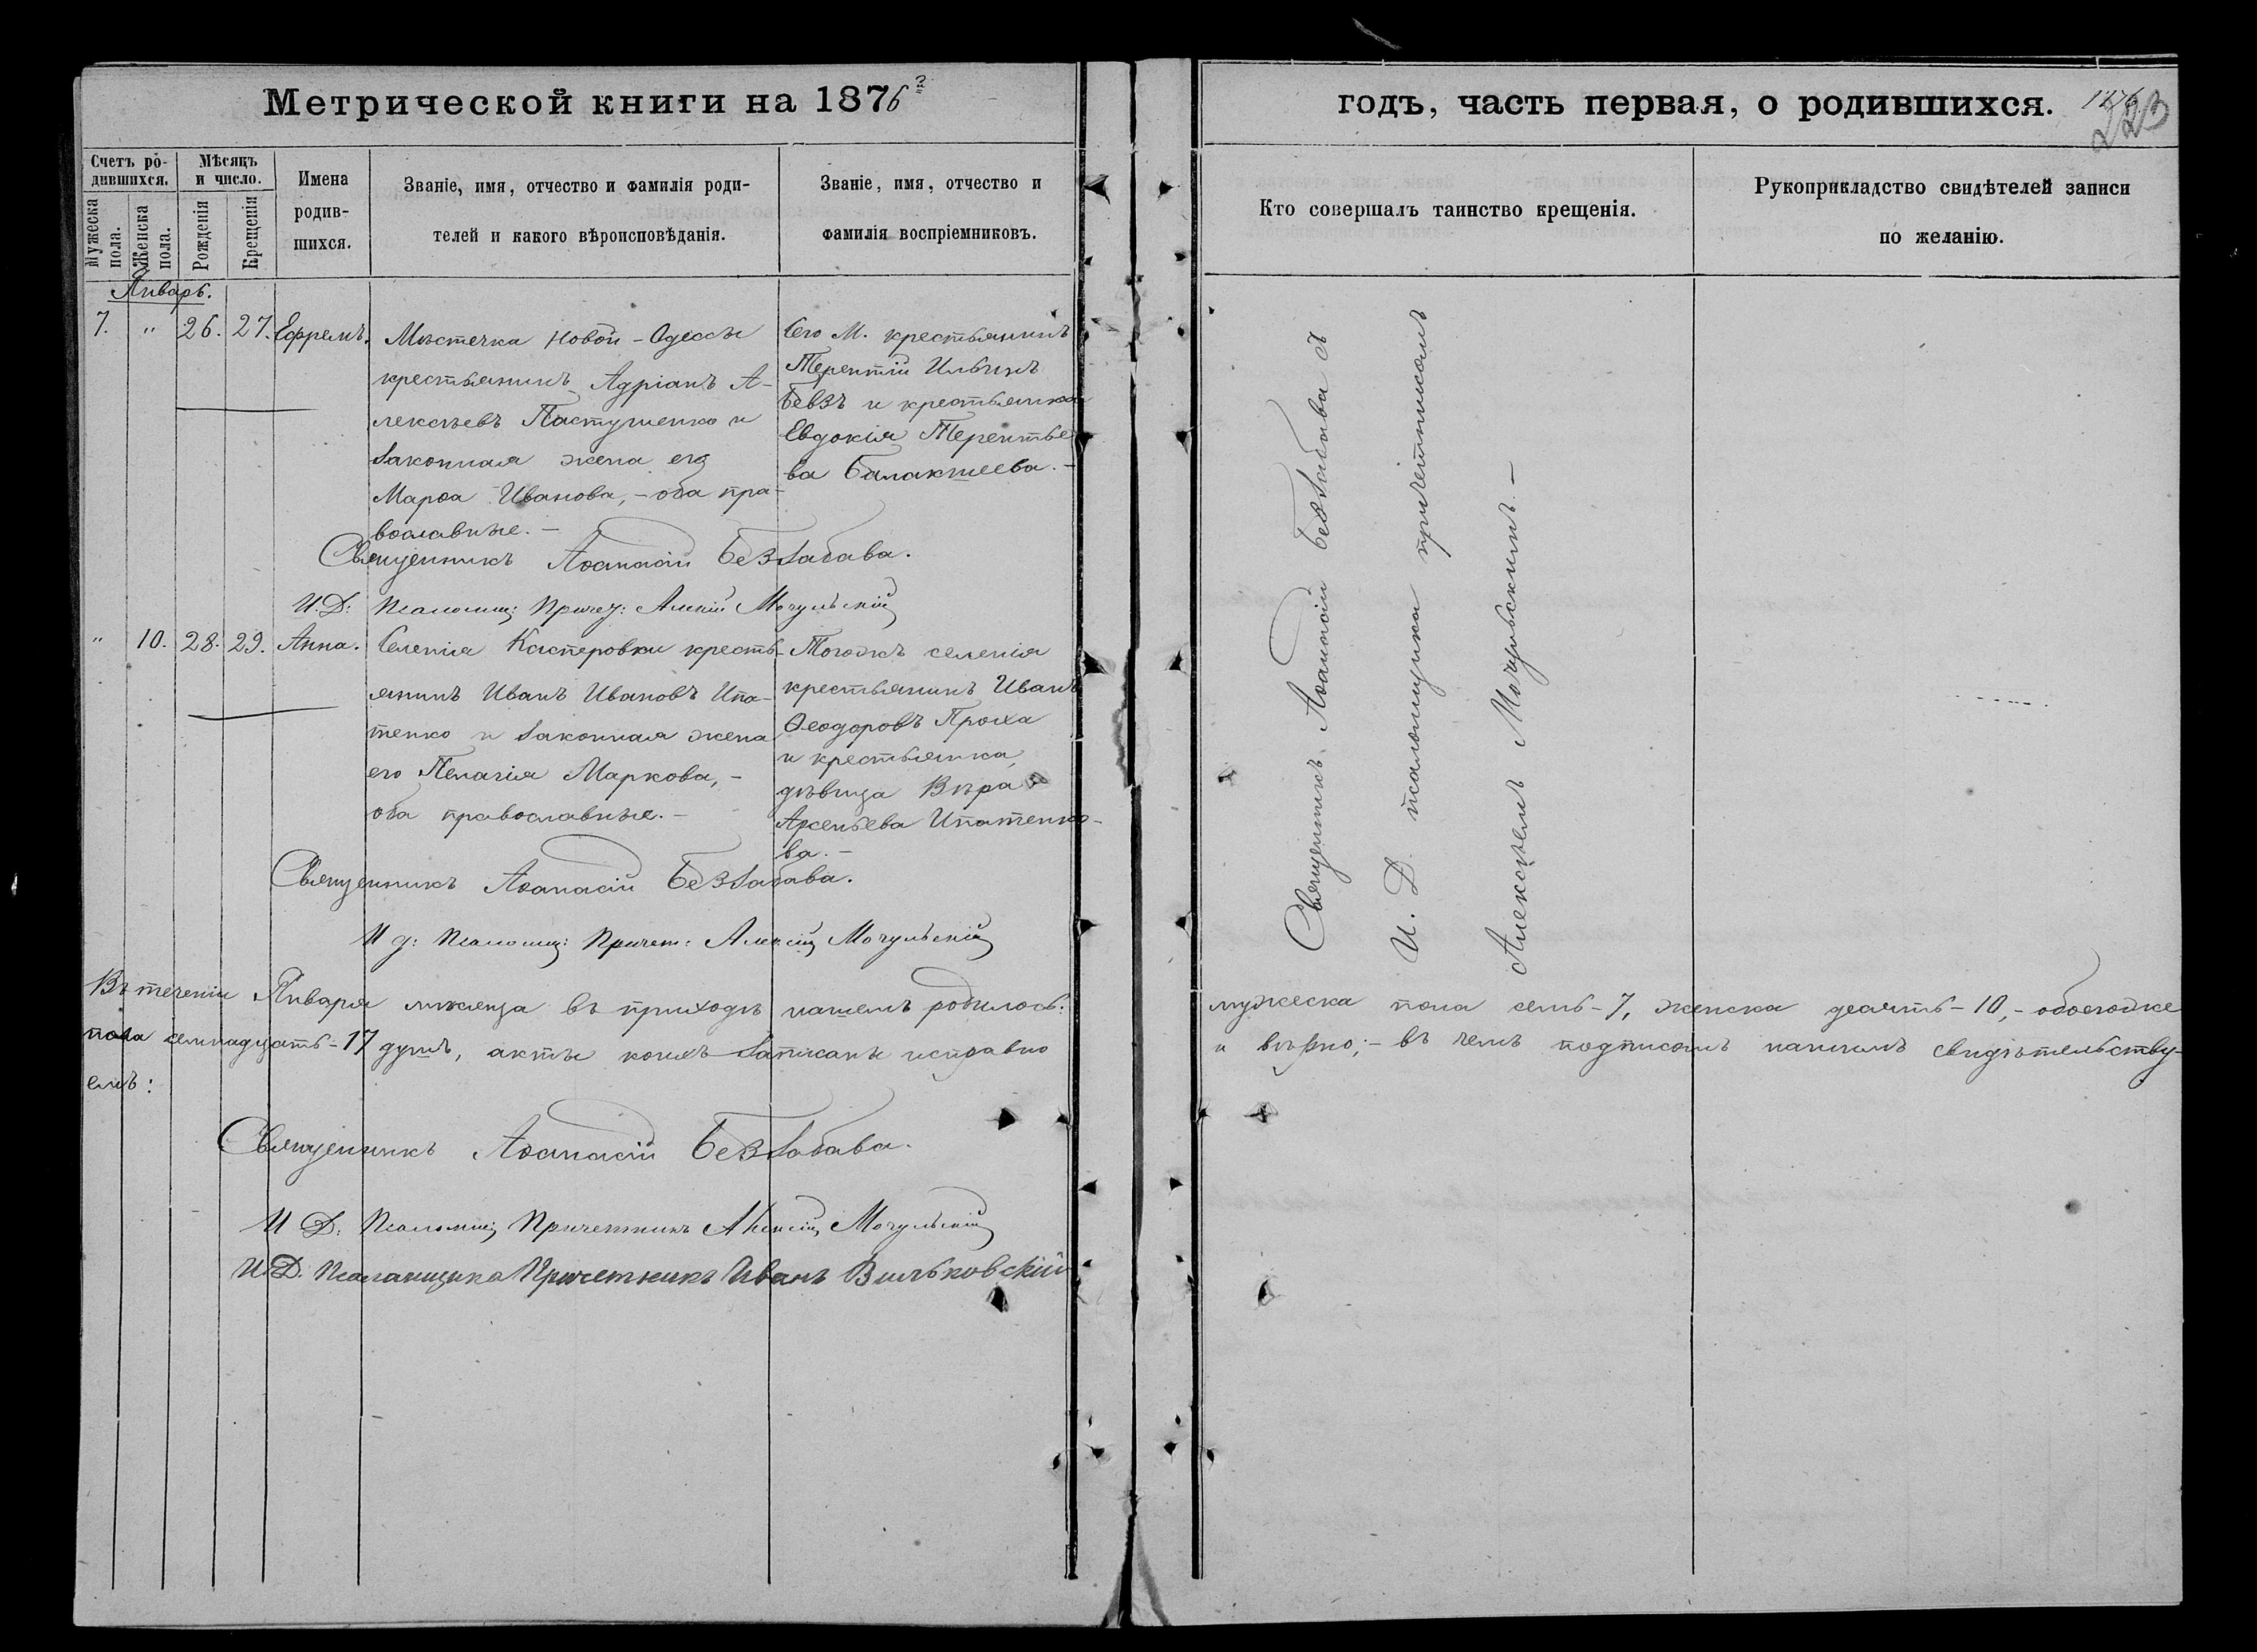 Метрической книги на 1876
годъ, часть первая, о родившихся.
223
Счетъ ро-
дившихся.
Мужеска
пола.
Женска
пола.
Мѣсяцъ
и число.
Рожденія
Крещенія
Имена
родив-
шихся.
Званіе, имя, отчество и фамилія роди-
телей и какого вѣроисповѣданія.
Званіе, имя, отчество и
фамилія воспріемниковъ.
Кто совершалъ таинство крещенія.
Рукоприкладство свидѣтелей записи
по желанію.
Январь.
7. " 26. 27. Ефремъ.
Мѣстечка Новой-Одессы
крестьянинъ Адріанъ А-
лексѣевъ Пастушенко и
законная жена его
Марѳа Иванова, - оба пра-
вославные. -
Сего М. крестьянинъ
Терентій Ильинъ
Бевзъ и крестьянка
Евдокія Терентье
ва Балакшеева. -
Священникъ Аѳанасій Беззабава.
И.Д: Псаломщ: Причет: Алексій Мочульскій
" 10. 28. 29. Анна.
Селенія Касперовки кресть-
янинъ Иванъ Ивановъ Ипа-
тенко и законная жена
его Пелагія Маркова, -
оба православные. -
Тогожъ селенія
крестьянинъ Иванъ
Ѳеодоровъ
и крестьянка,
дѣвица Вѣра
Арсеньева Ипатенко-
ва. -
Священникъ Аѳанасій Беззабава.
И д: Псаломщ: Причет: Алексій Мочульскій
Священникъ Аѳанасій Беззабава съ
И. Д. псаломщика причетникомъ
Алексѣемъ Мочульскимъ. -
Въ теченіи Января мѣсяца въ приходѣ нашемъ родилось: мужеска пола семь-7, женска десять-10, - обоегоже
пола семнадцать-17 душъ, акты коихъ записаны исправно и вѣрно; - въ чемъ подписомъ нашимъ свидѣтельству-
емъ:
Священникъ Аѳанасій Беззабава.
И Д: Псаломщ: Причетникъ Алексій Мочульскій
И.Д. Псаломщика Причетникъ Иванъ Вильковскій